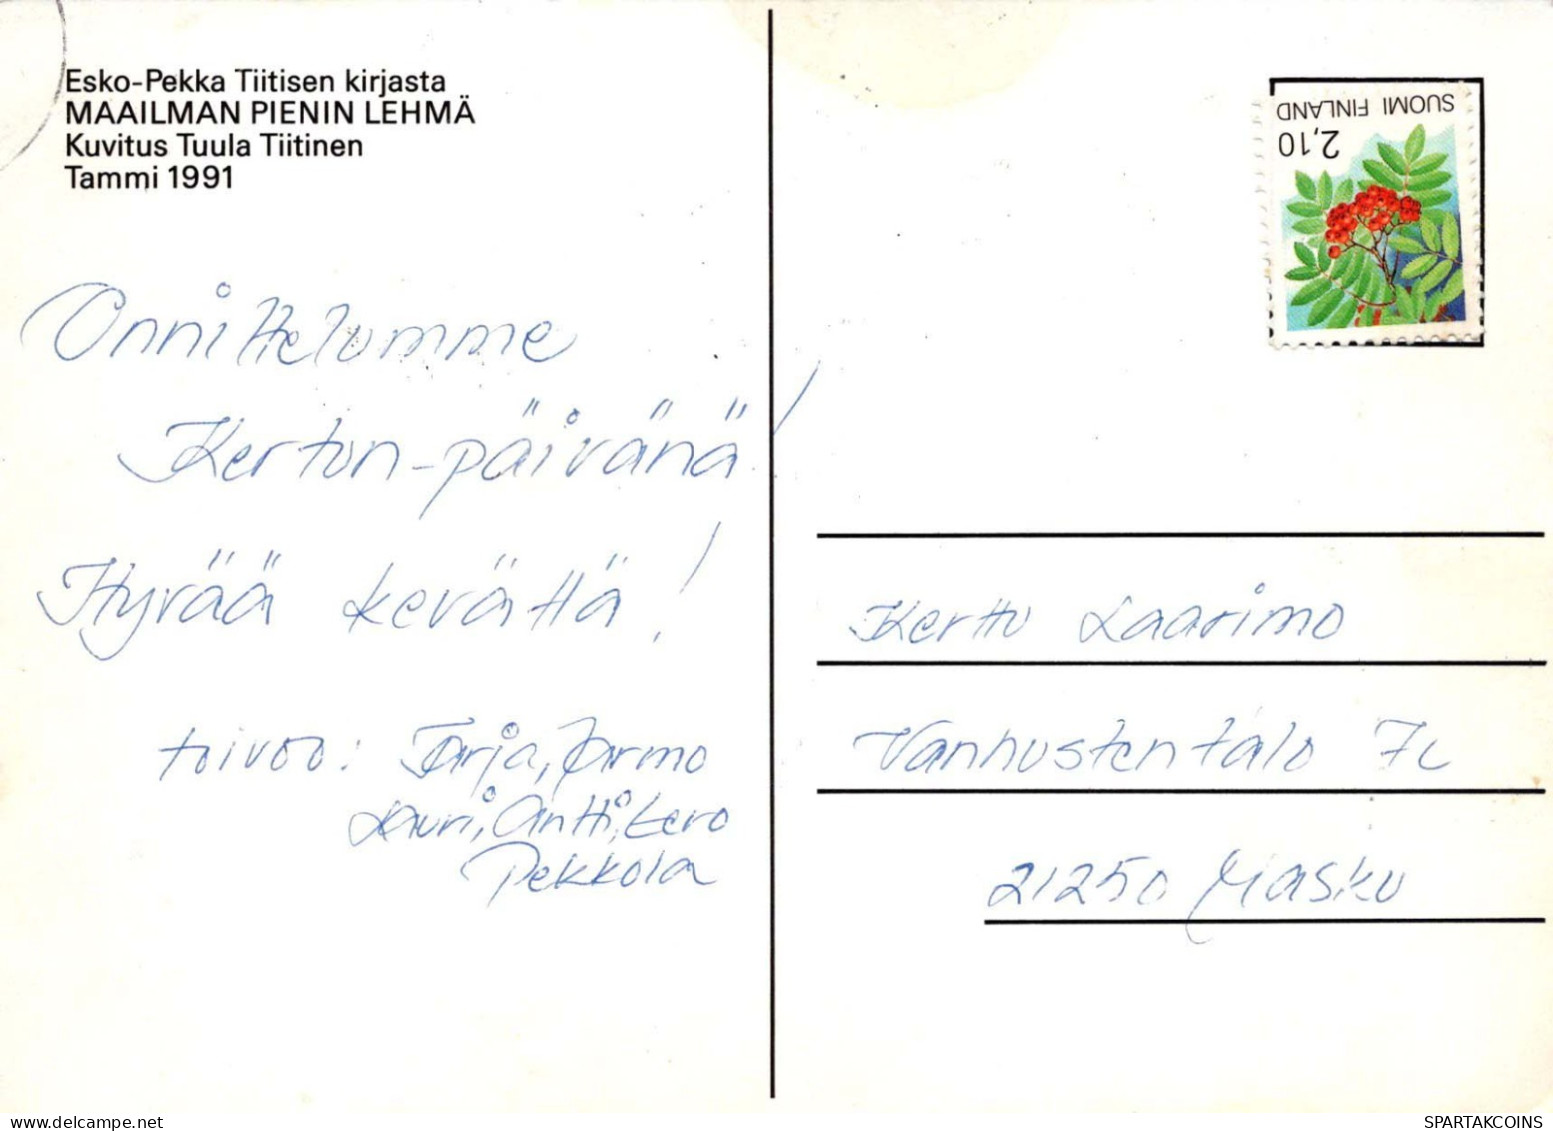 Esko-Pekka Tiitisen kirjasta
MAAILMAN PIENIN LEHMÄ
Kuvitus Tuula Tiitinen
Tammi 1991
Onnittelumme
Kerton-päivänä!
Hyvää kevättä!
toivoo: Tarja, Jarmo
Lauri, Antti, Eero
Pekkola
SUOMI FINLAND
2,10
Kerttu Laarimo
Vanhustentalo 7c
21250 Masku
delcampe.net
SPARTAKCOINS